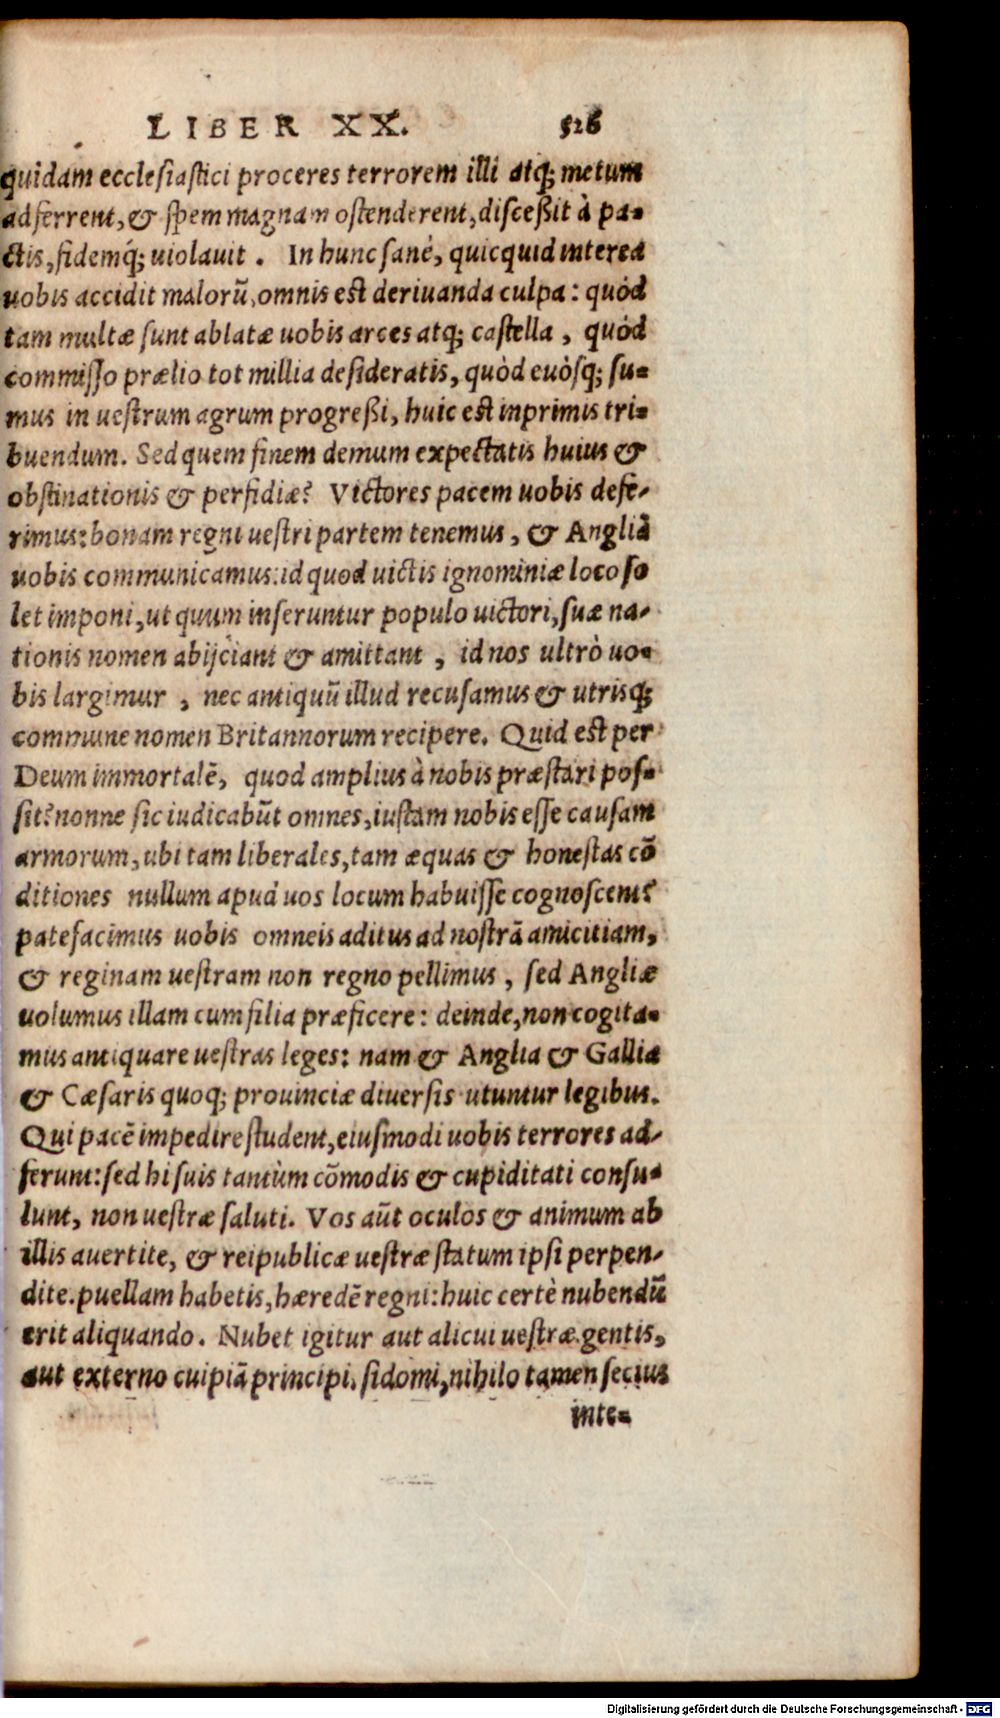 LIBER XX. 526
quidam ecclesiastici proceres terrorem illi atq; metum
adferrent, & spem magnam ostenderent, disceßit à pa-
ctis, fidemq́; uiolauit. In hunc sanè, quicquid interea
uobis accidit malorũ, omnis est deriuanda culpa: quòd
tam multæ sunt ablatæ uobis arces atq; castella, quòd
commisso prælio tot millia desideratis, quòd euòsq́; su-
mus in uestrum agrum progreßi, huic est inprimis tri-
buendum. Sed quem finem demum expectatis huius &
obstinationis & perfidiæ? Victores pacem uobis defe-
rimus: bonam regni uestri partem tenemus, & Angliã
uobis communicamus: id quod uictis ignominiæ loco so
let imponi, ut quum inseruntur populo uictori, suæ na-
tionis nomen abijciant & amittant, id nos ultrò uo-
bis largimur, nec antiquũ illud recusamus & utrisq́;
commune nomen Britannorum recipere. Quid est per
Deum immortalẽ, quod amplius à nobis præstari pos-
sit? nonne sic iudicabũt omnes, iustam nobis esse causam
armorum, ubi tam liberales, tam æquas & honestas cõ
ditiones nullum apud uos locum habuisse cognoscent?
patefacimus uobis omneis aditus ad nostrã amicitiam,
& reginam uestram non regno pellimus, sed Angliæ
uolumus illam cum filia præficere: deinde, non cogita-
mus antiquare uestras leges: nam & Anglia & Gallia
& Cæsaris quoq; prouinciæ diuersis utuntur legibus.
Qui pacẽ impedire student, eiusmodi uobis terrores ad-
ferunt: sed hi suis tantùm cõmodis & cupiditati consu-
lunt, non uestræ saluti. Vos aũt oculos & animum ab
illis auertite, & reipublicæ uestræ statum ipsi perpen-
dite. puellam habetis, hæredẽ regni: huic certè nubendũ
erit aliquando. Nubet igitur aut alicui uestræ gentis,
aut externo cuipiã principi. si domi, nihilo tamen secius
inte-
Digitalisierung gefördert durch die Deutsche Forschungsgemeinschaft - DFG